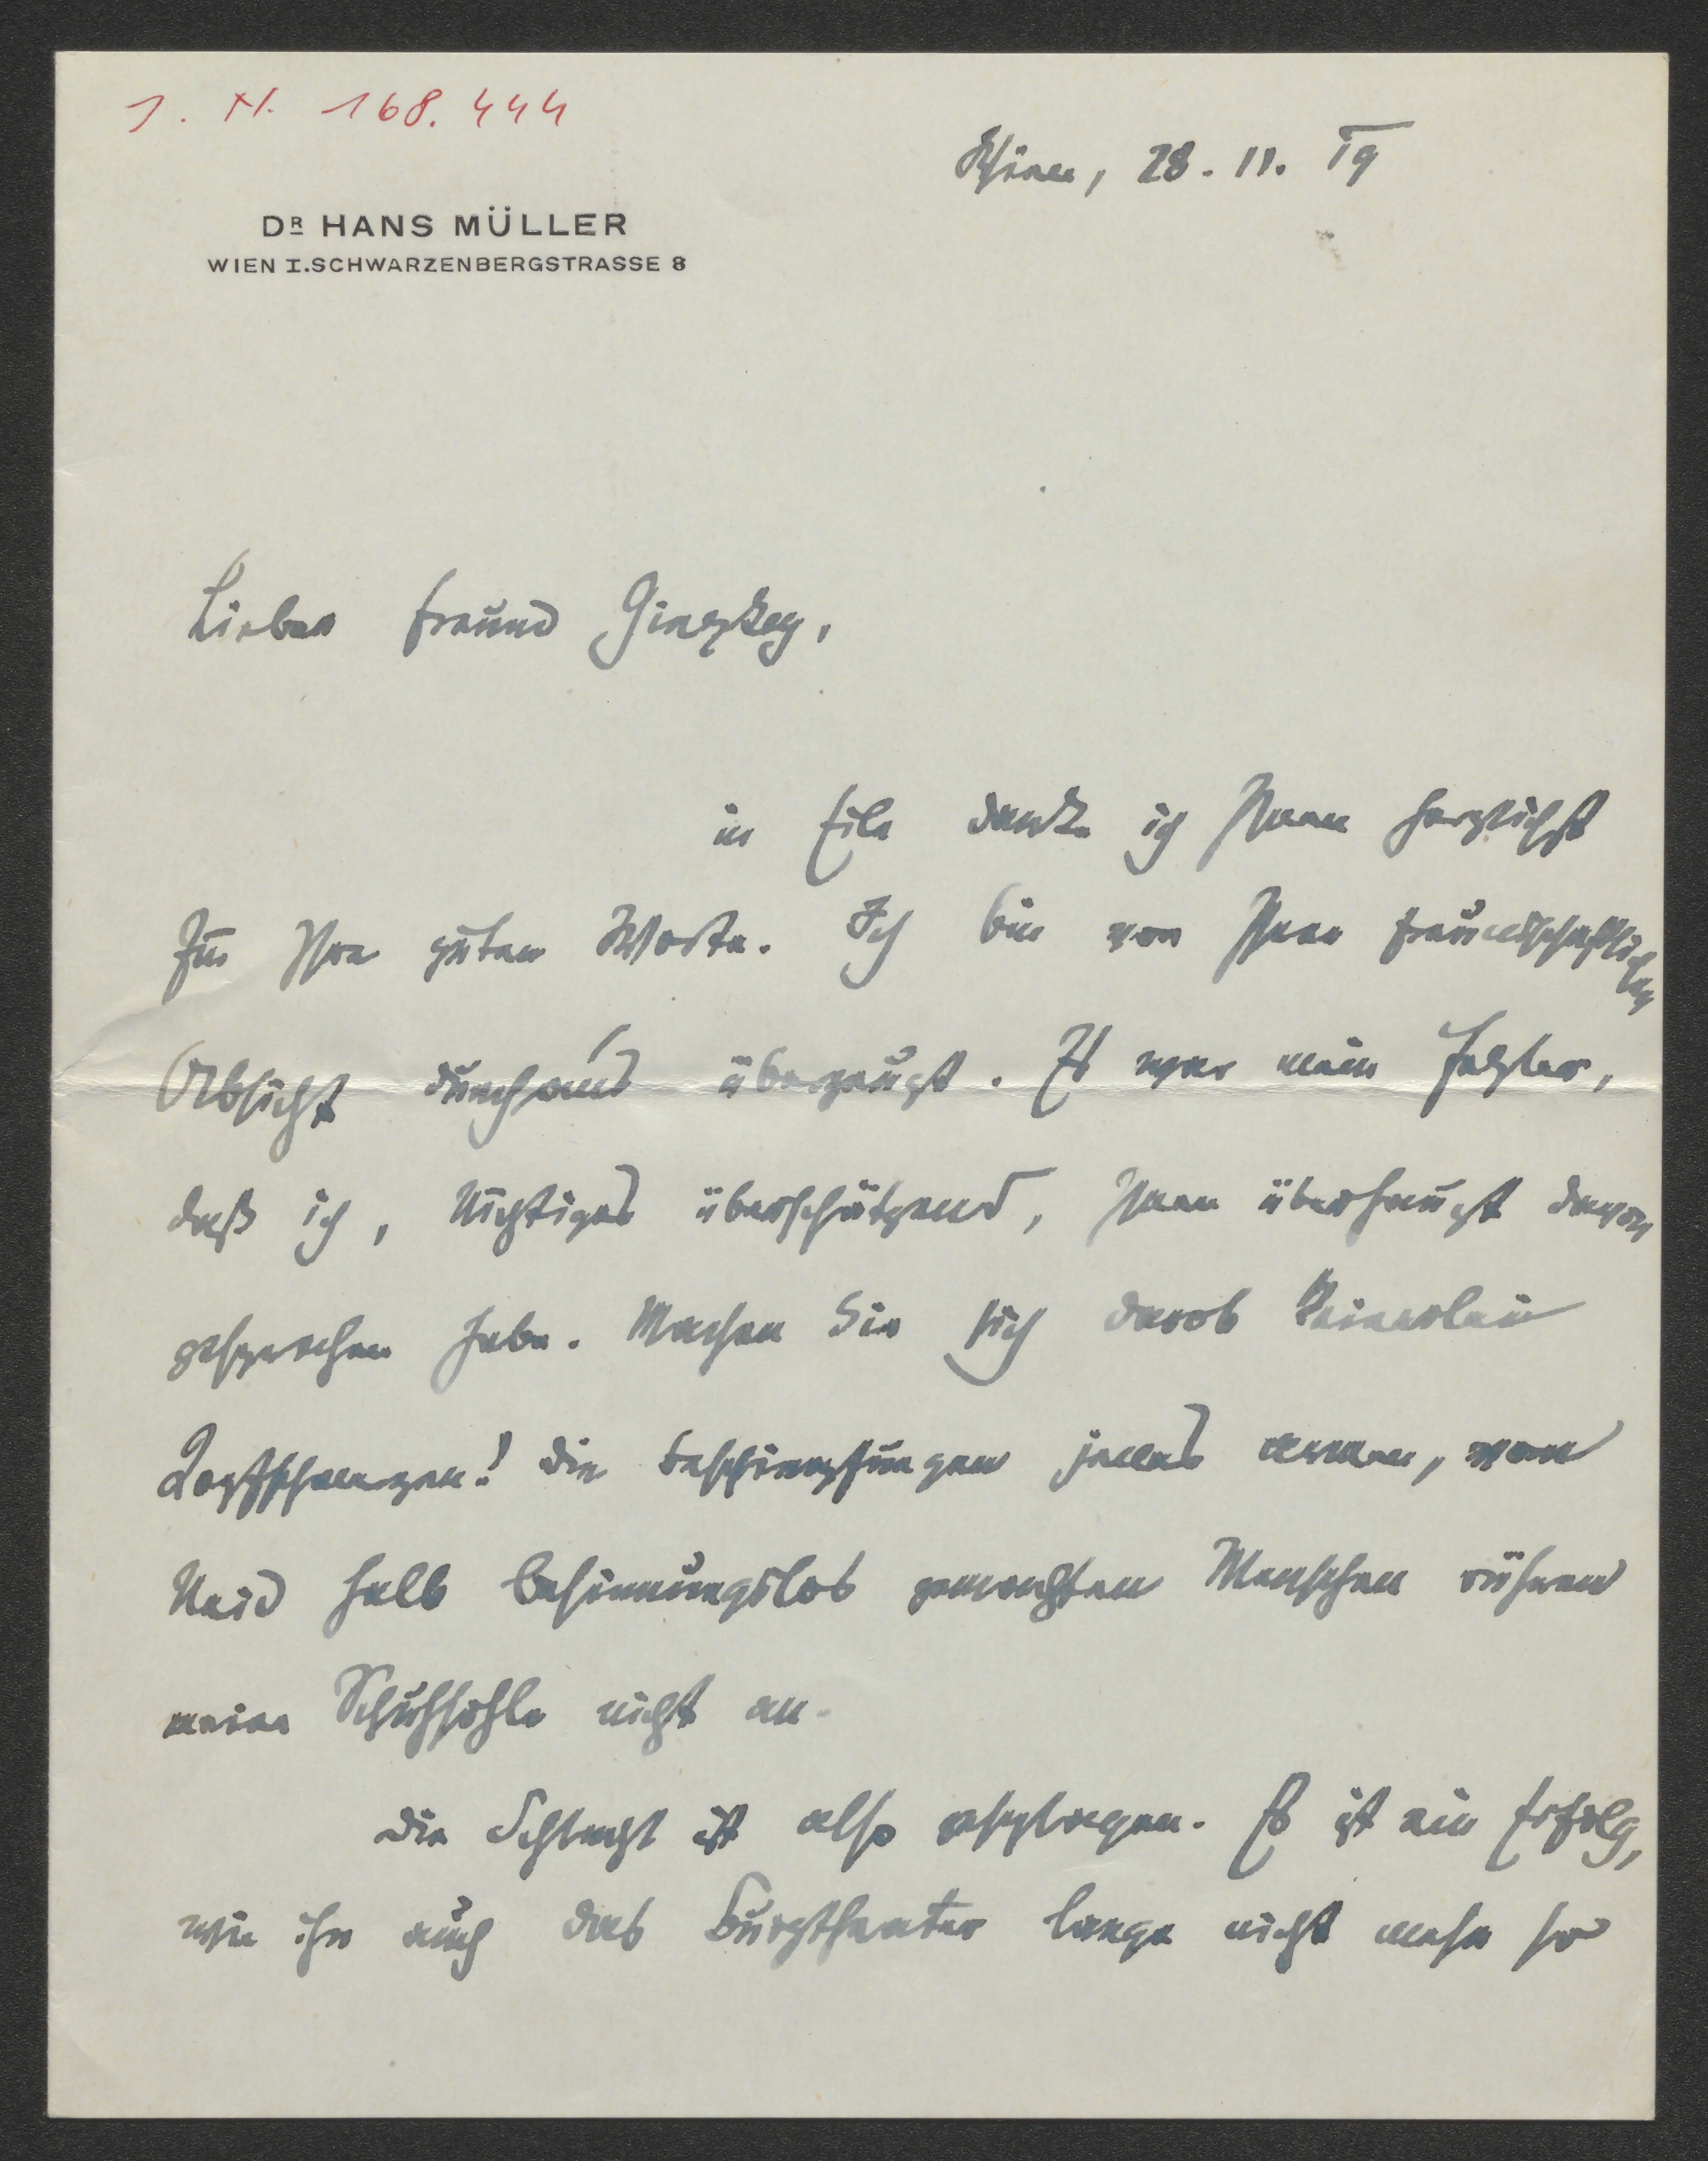 J. N. 168.444
Wien, 28. 11. 19
DR HANS MÜLLER
WIEN I. SCHWARZENBERGSTRASSE 8
Lieber Freund Ginzkey,
in Eile danke ich Ihnen herzlichst
für Ihre guten Worte. Ich bin von Ihrer freundschaftlichen
Absicht durchaus überzeugt. Es war mein Fehler,
daß ich, Nichtiges überschätzend, Ihnen überhaupt davon
gesprochen habe. Machen Sie sich darob keinerlei
Kopfschmerzen! Die Beschimpfungen jenes armen, vom
Neid halb besinnungslos gemachten Menschen rühren
meine Schuhsohle nicht an.
Die Schlacht ist also geschlagen. Es ist ein Erfolg,
wie ihn auch das Burgtheater lange nicht mehr so